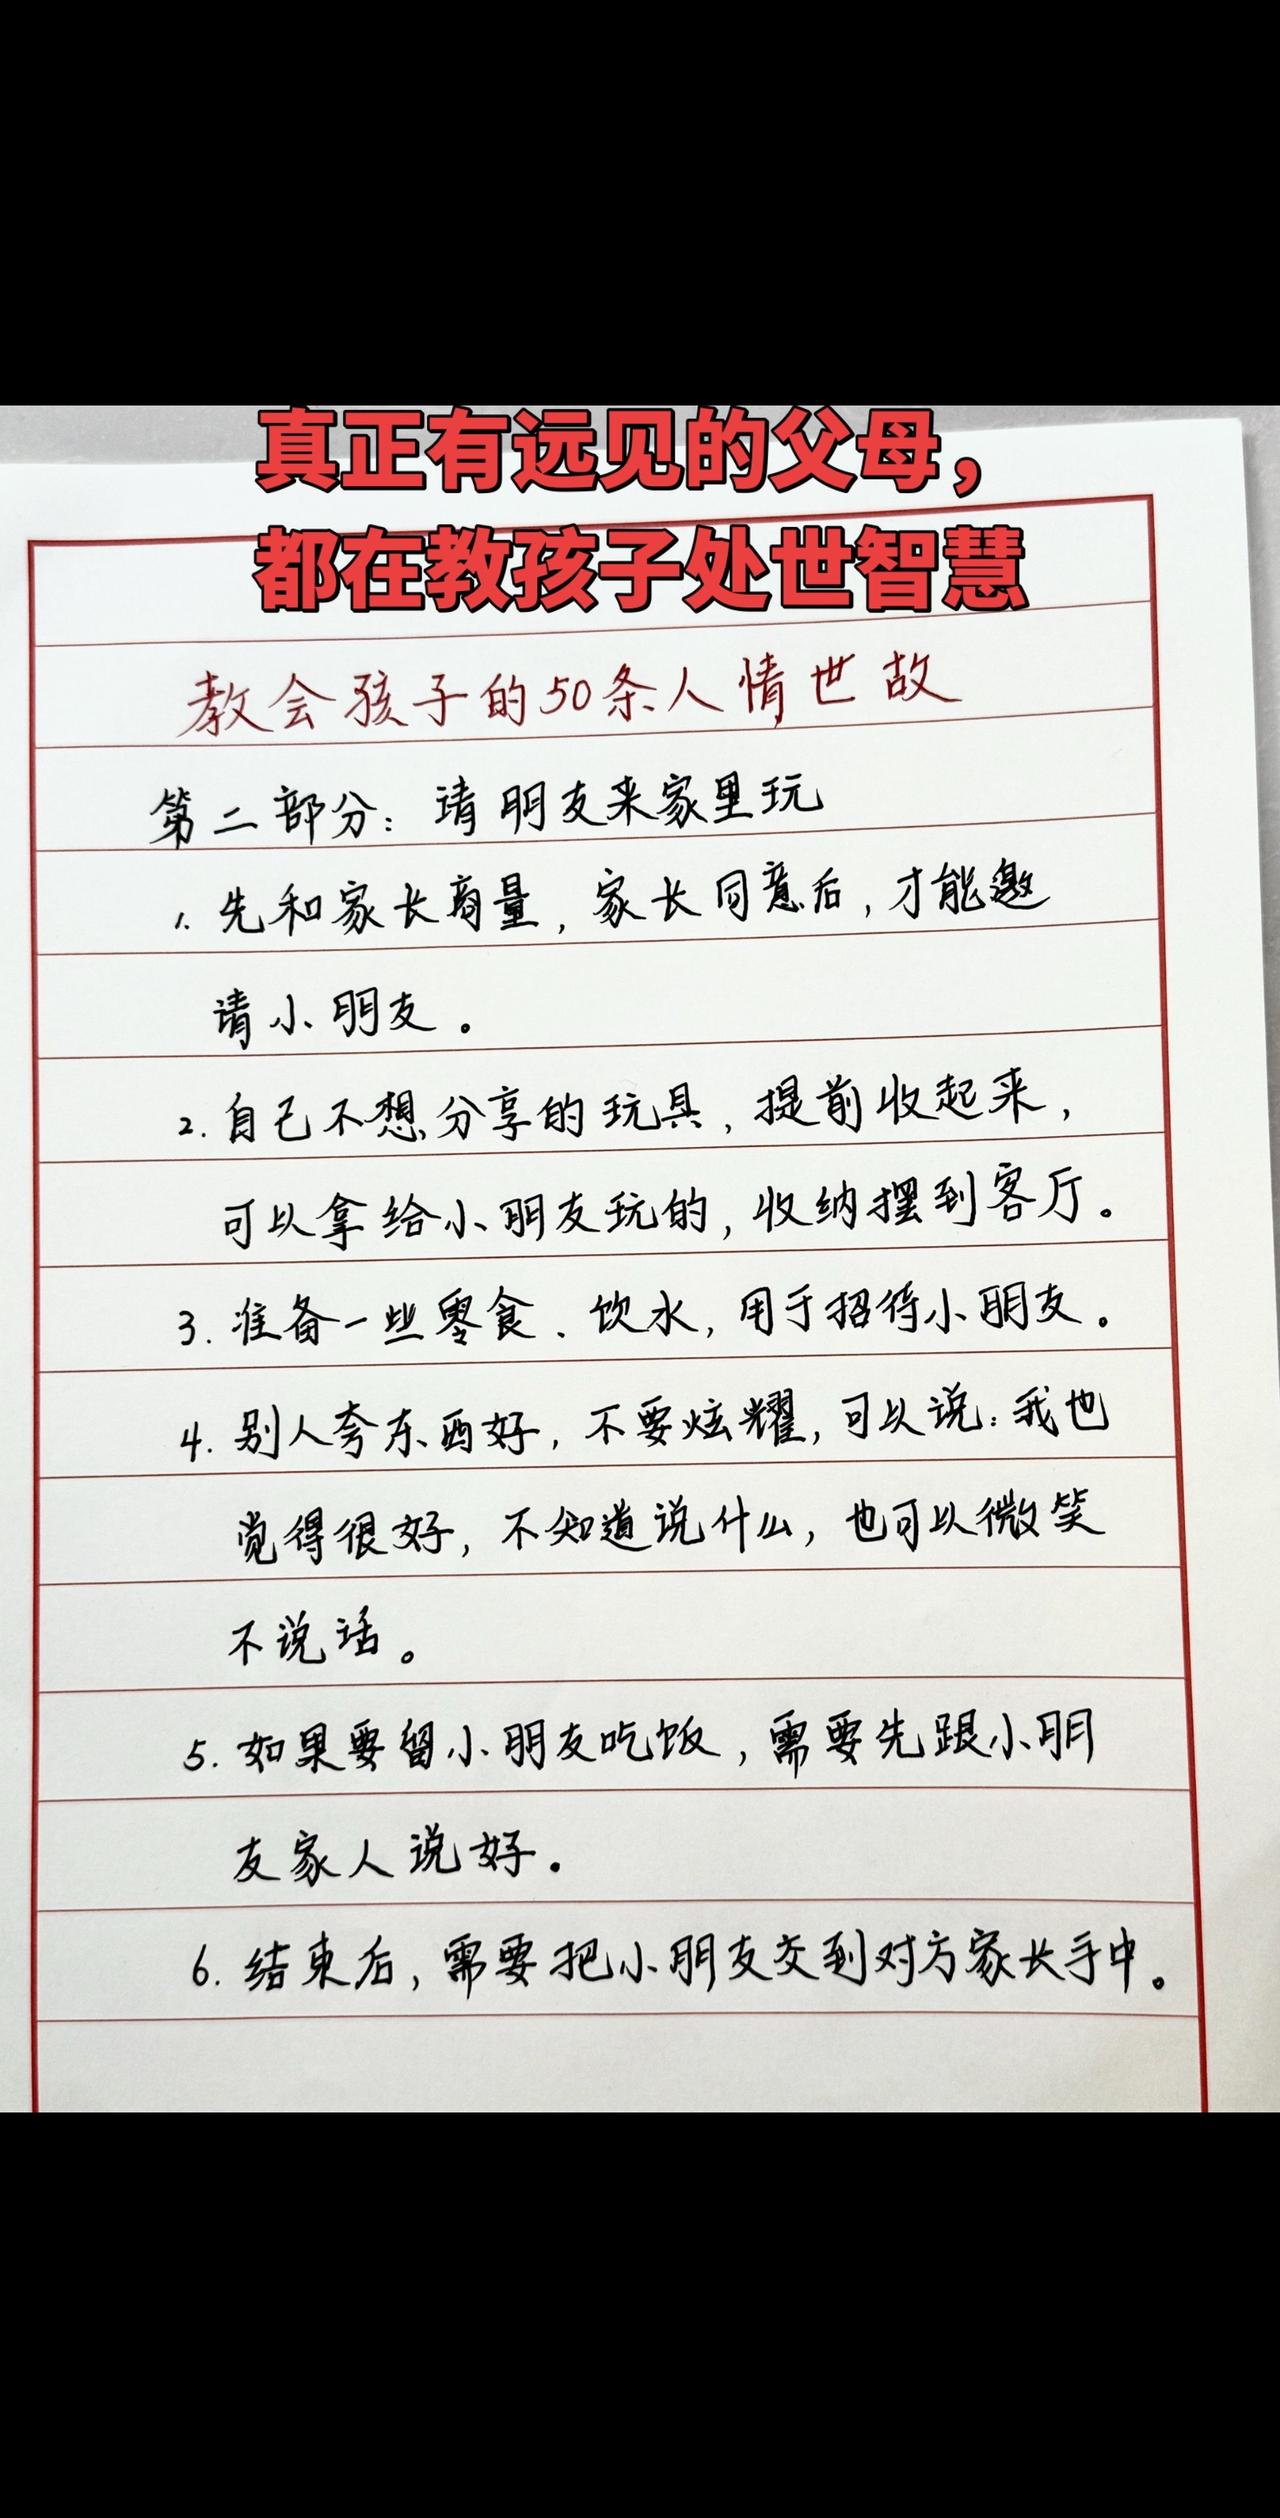 真正有远见的父母，
都在教孩子处世智慧
教会孩子的50条人情世故
第二部分：请朋友来家里玩
1. 先和家长商量，家长同意后，才能邀
请小朋友。
2. 自己不想分享的玩具，提前收起来，
可以拿给小朋友玩的，收纳摆到客厅。
3. 准备一些零食、饮水，用于招待小朋友。
4. 别人夸东西好，不要炫耀，可以说：我也
觉得很好，不知道说什么，也可以微笑
不说话。
5. 如果要留小朋友吃饭，需要先跟小朋
友家人说好。
6. 结束后，需要把小朋友交到对方家长手中。